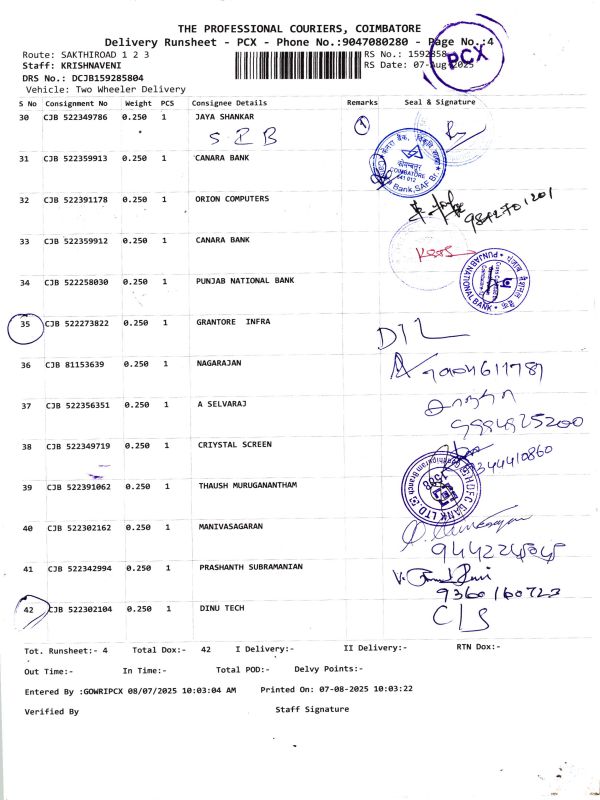 THE PROFESSIONAL COURIERS, COIMBATORE
Delivery Runsheet - PCX - Phone No.:9047080280 - Page No.:4
Route: SAKTHIROAD 1 2 3
RS No.: 1592858
Staff: KRISHNAVENI
RS Date: 07-Aug-2025
PCX
DRS No.: DCJB159285804
Vehicle: Two Wheeler Delivery
S No Consignment No Weight PCS Consignee Details Remarks Seal & Signature
30 CJB 522349786 0.250 1 JAYA SHANKAR
1
31 CJB 522359913 0.250 1 CANARA BANK
COIMBATORE
641 012
Bank, SAF Br.
32 CJB 522391178 0.250 1 ORION COMPUTERS
9842701201
33 CJB 522359912 0.250 1 CANARA BANK
34 CJB 522258030 0.250 1 PUNJAB NATIONAL BANK
PUNJAB NATIONAL BANK
35 CJB 522273822 0.250 1 GRANTORE INFRA
DTL
36 CJB 81153639 0.250 1 NAGARAJAN
37 CJB 522356351 0.250 1 A SELVARAJ
38 CJB 522349719 0.250 1 CRIYSTAL SCREEN
344410860
39 CJB 522391062 0.250 1 THAUSH MURUGANANTHAM
HDFC BANK LTD
1588
40 CJB 522302162 0.250 1 MANIVASAGARAN
41 CJB 522342994 0.250 1 PRASHANTH SUBRAMANIAN
9360160723
42 CJB 522302104 0.250 1 DINU TECH
C/S
Tot. Runsheet:- 4 Total Dox:- 42 I Delivery:- II Delivery:- RTN Dox:-
Out Time:- In Time:- Total POD:- Delvy Points:-
Entered By :GOWRIPCX 08/07/2025 10:03:04 AM Printed On: 07-08-2025 10:03:22
Verified By Staff Signature